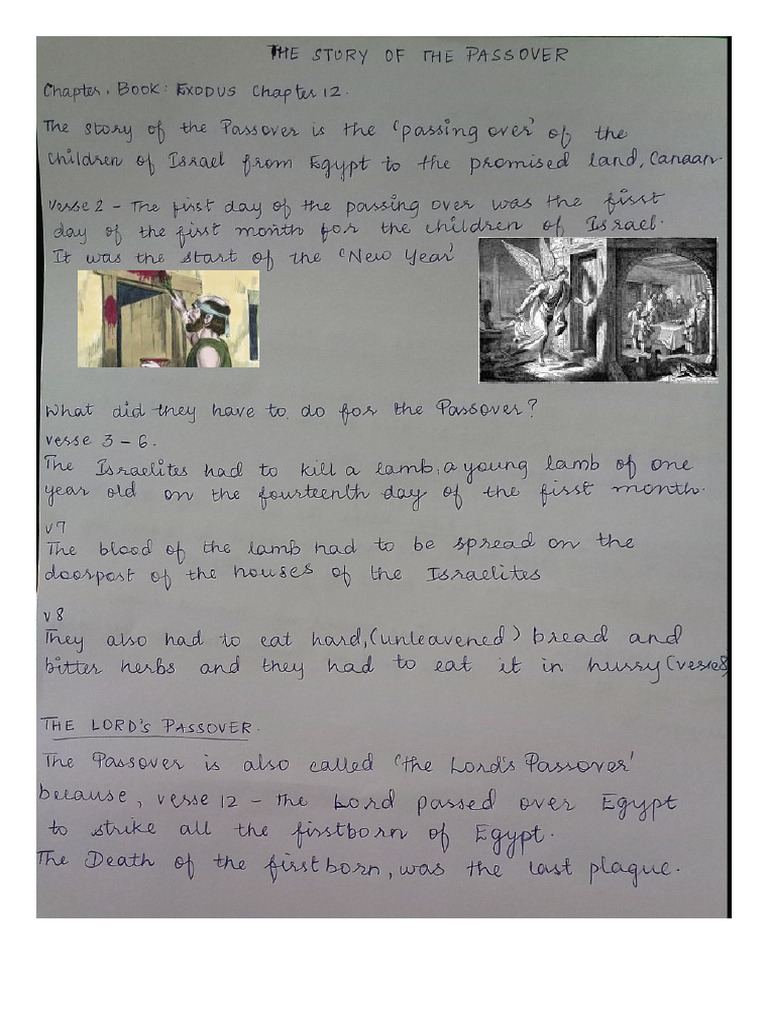 THE STORY OF THE PASSOVER
Chapter. BOOK: EXODUS Chapter 12.
The story of the Passover is the 'passing over' of the
children of Israel from Egypt to the promised land, Canaan.
Verse 2 - The first day of the passing over was the first
day of the first month for the children of Israel.
It was the start of the 'New Year'
What did they have to do for the Passover?
verse 3 - 6.
The Israelites had to kill a lamb, a young lamb of one
year old on the fourteenth day of the first month.
v7
The blood of the lamb had to be spread on the
doorpost of the houses of the Israelites
v8
They also had to eat hard, (unleavened) bread and
bitter herbs and they had to eat it in hurry (verse8)
THE LORD'S PASSOVER.
The Passover is also called 'the Lord's Passover'
because, verse 12 - the Lord passed over Egypt
to strike all the firstborn of Egypt.
The Death of the firstborn, was the last plague.